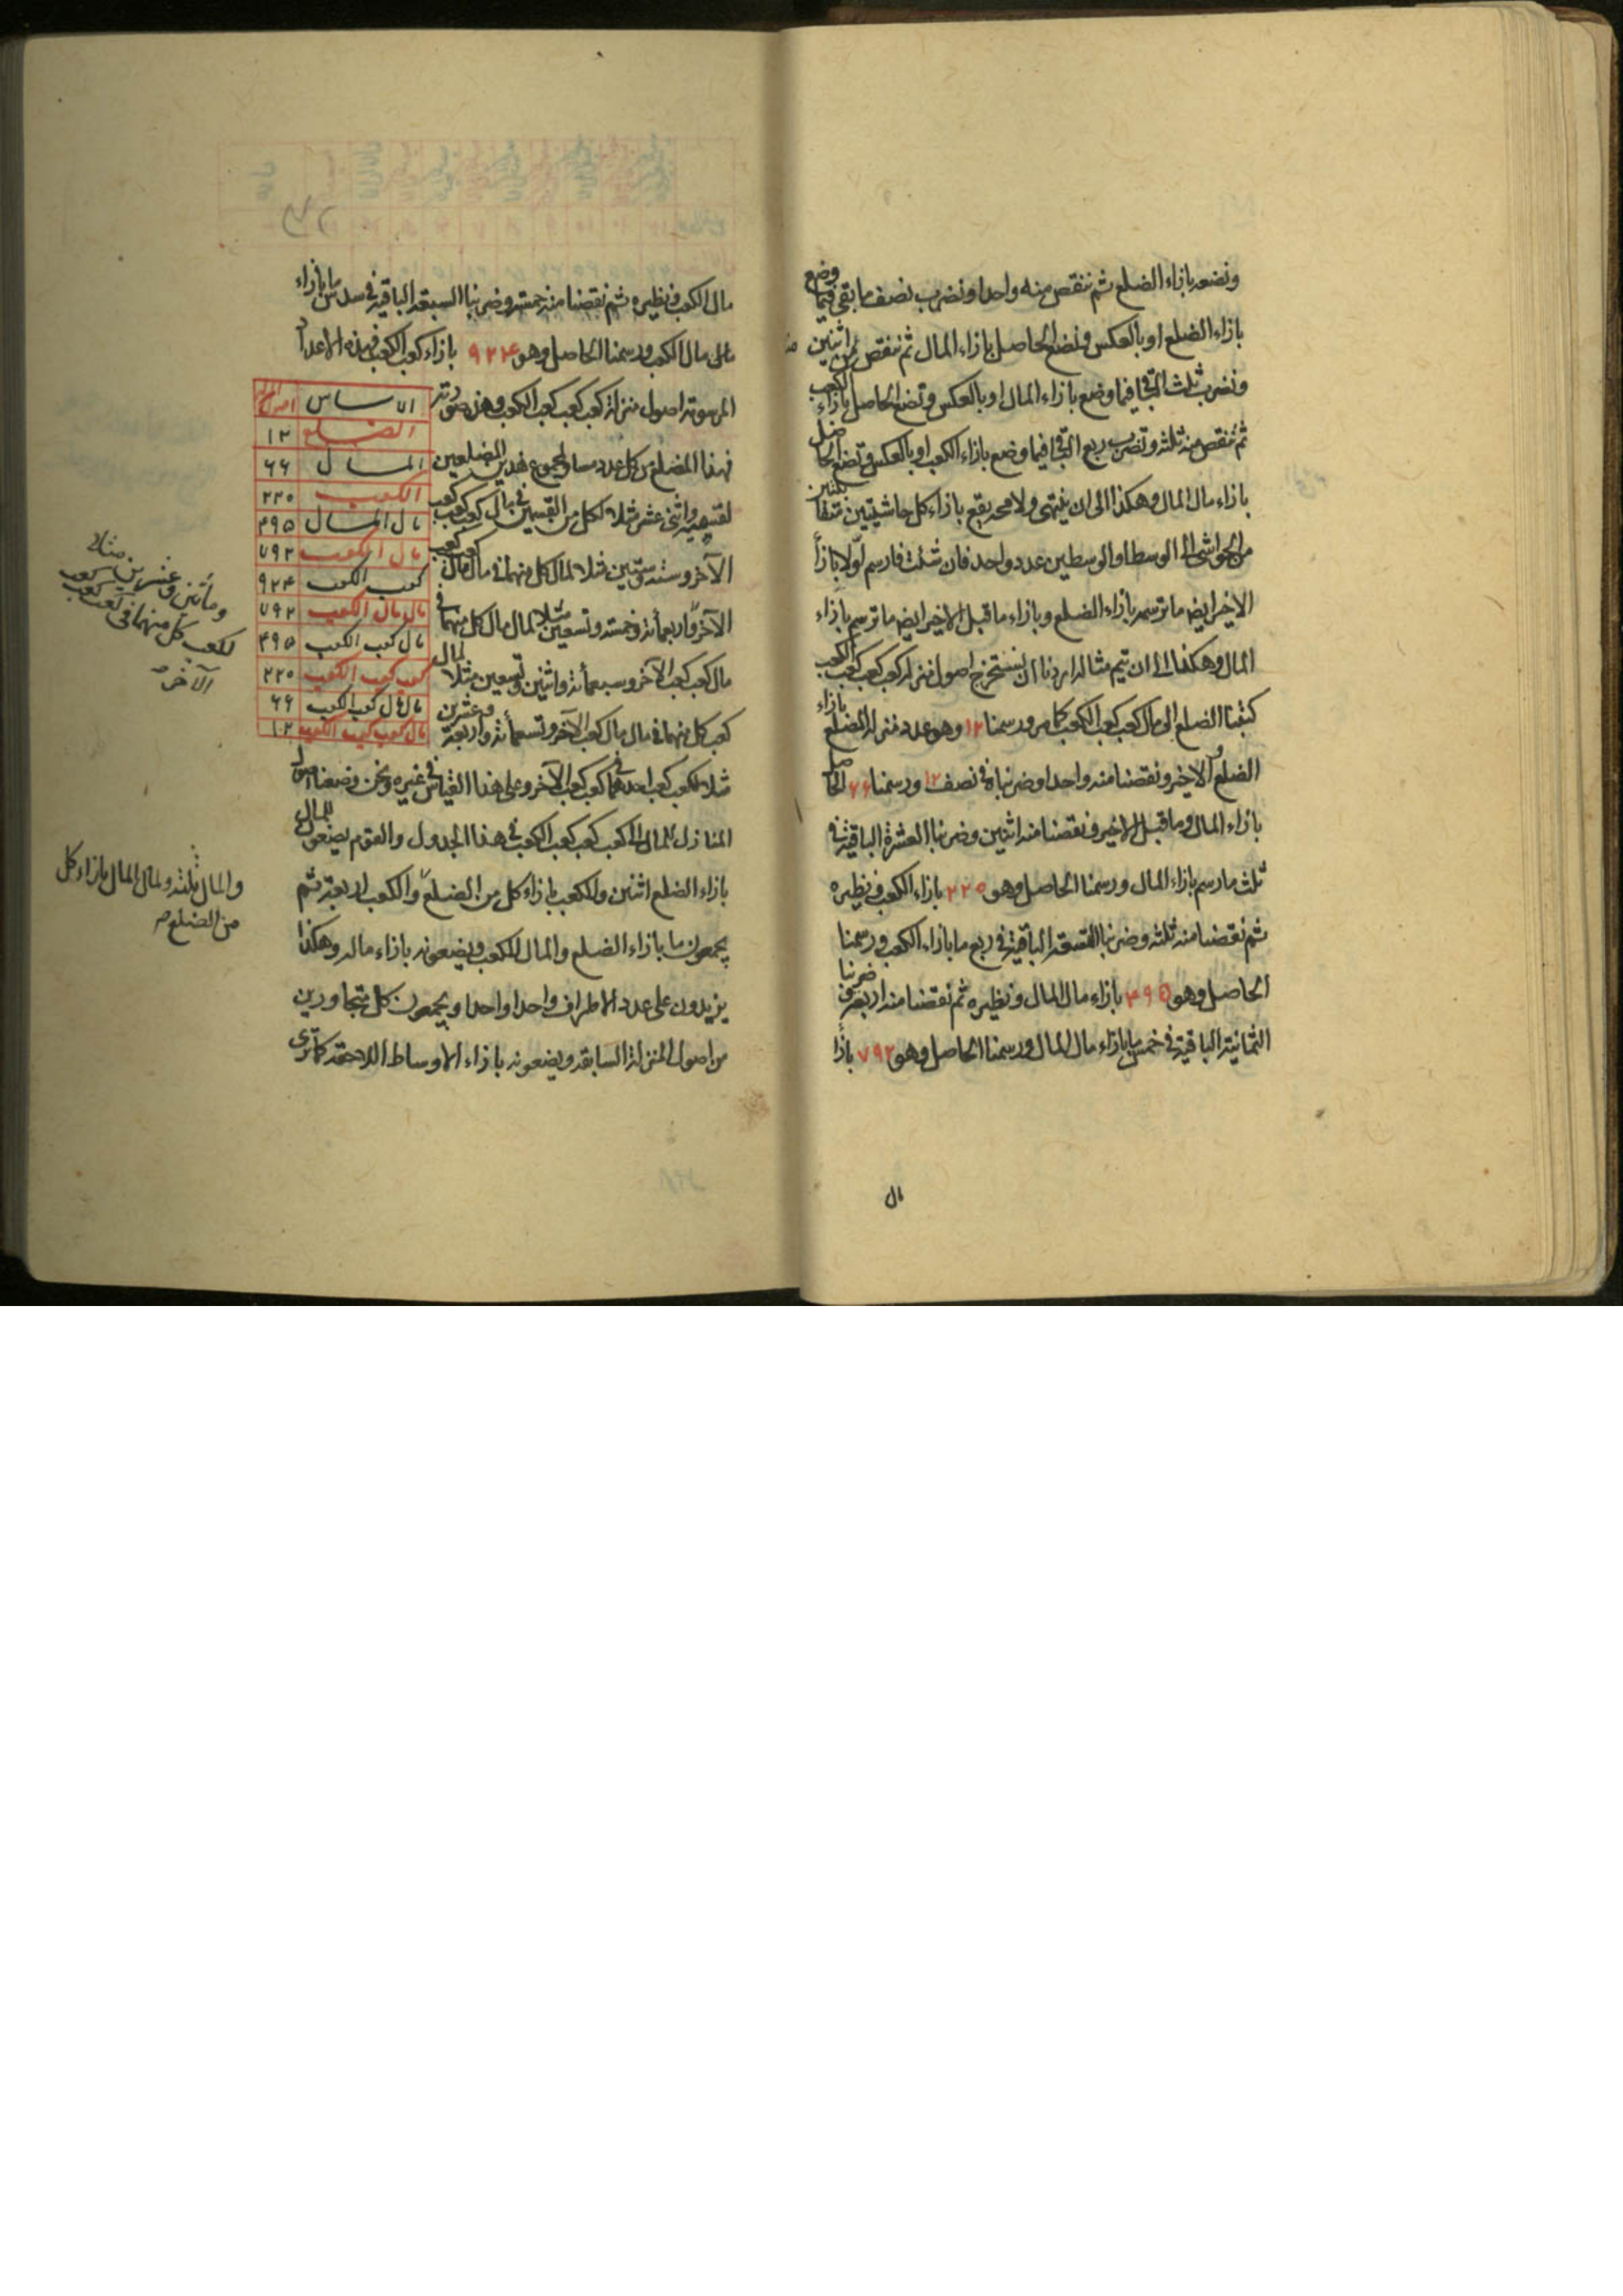 ونضعه بازاء الضلع ثم ننقص منه واحدا ونضرب نصف ما بقى فيما وضع
بازاء الضلع او بالعكس ونضع الحاصل بازاء المال ثم ننقص من اثنين
ونضرب ثلث الباقى فيما وضع بازاء المال او بالعكس ونضع الحاصل بازاء الكعب
ثم ننقص منه ثلثة ونضرب ربع الباقى فيما وضع بازاء الكعب او بالعكس ونضع الحاصل
بازاء مال المال وهكذا الى ان ينتهى ولا محه يقع بازاء كل حاشيتين متقابلتين
من الحواشى الى الوسط او الوسطين عدد واحد فان شئت فارسم اولا بازاء
الاخير ايض ما ترسمه بازاء الضلع وبازاء ما قبل الاخير ايض ما ترسم بازاء
المال وهكذا الى ان يتم مثاله اردنا ان نستخرج اصول منزلة كعب كعب كعب الكعب
كتبنا الضلع الى مال كعب كعب الكعب كما مر ورسمنا ١٢ وهو عدد منزلة المضلع بازاء
الضلع والاخير ونقصنا منه واحدا وضربناه فى نصف ١٢ ورسمنا ٦٦ الحاصل
بازاء المال وما قبل الاخير ونقصنا منه اثنين وضربنا العشرة الباقية فى
ثلث ما رسم بازاء المال ورسمنا الحاصل وهو ٢٢٠ بازاء الكعب ونظيره
ثم نقصنا منه ثلثة وضربنا التسعة الباقية فى ربع ما بازاء الكعب ورسمنا
الحاصل وهو ٤٩٥ بازاء مال المال ونظيره ثم نقصنا منه اربعة وضربنا
الثمانية الباقية فى خمس ما بازاء مال المال ورسمنا الحاصل وهو ٧٩٢ بازاء
مال
مال الكعب ونظيره ثم نقصنا منه خمسة وضربنا السبعة الباقية فى سدس ما بازاء
مال الكعب ورسمنا الحاصل وهو ٩٢٤ بازاء كعب الكعب فهذه الاعداد
المرسومة اصول منزلة كعب كعب كعب الكعب وهذه صورته
الاساس | اصول المنزلة
الضلع | ١٢
المال | ٦٦
الكعب | ٢٢٠
مال المال | ٤٩٥
مال الكعب | ٧٩٢
كعب الكعب | ٩٢٤
مال مال الكعب | ٧٩٢
مال كعب الكعب | ٤٩٥
كعب كعب الكعب | ٢٢٠
مال مال كعب الكعب | ٦٦
مال كعب كعب الكعب | ١٢
فهذا المضلع من كل عدد مساو لمجموع هذين المضلعين
لقسميه واثنى عشر مثلا لكل من القسمين فى مال كعب كعب كعب
الآخر وستة وستين مثلا لمال كل منهما فى مال مال كعب كعب
الآخر واربعمائة وخمسة وتسعين مثلا لمال مال كل منهما فى
مال كعب كعب الآخر وسبعمائة واثنين وتسعين مثلا لمال
كعب كل منهما فى مال مال كعب الآخر وتسعمائة واربعة وعشرين
مثلا لكعب كعب احدهما فى كعب كعب الآخر وعلى هذا القياس فى غيره ونحن وضعنا اصول
المنازل للمال الى كعب كعب كعب الكعب فى هذا الجدول والقوم يضعون للمال
بازاء الضلع اثنين وللكعب بازاء كل من الضلع والكعب اربعة ثم
يجمعون ما بازاء الضلع والمال للكعب ويضعونه بازاء ماله وهكذا
يزيدون على عدد الاطراف واحدا واحدا ويجمعون كل متجاورين
من اصول المنزلة السابقة ويضعونه بازاء الاوساط اللاحقة كما ترى
ومأتين وعشرين مثلا
لكعب كل منهما فى كعب كعب كعب
الآخر
والمال ثلثة ولمال المال بازاء كل
من الضلع